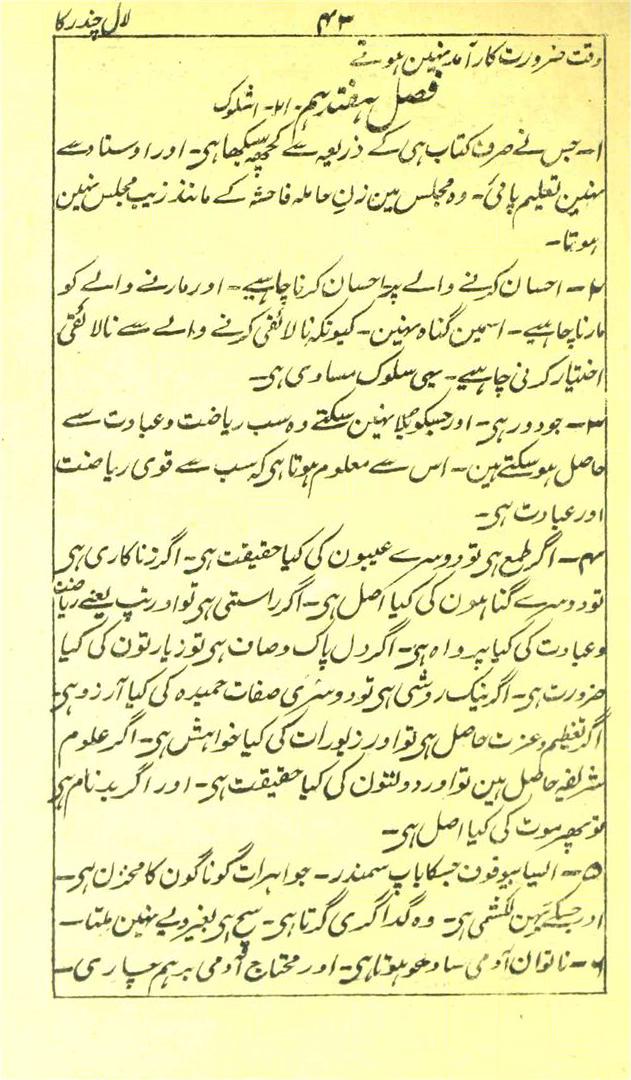 لال چندرکا ۴۳
وقت ضرورت کارآمد نہین ہوتے
فصل ہفتدہم - ۲۱ - اشلوک
۱- جس نے صرف کتاب ہی کے ذریعہ سے کچھہ سیکھا ہی - اور اوستاد سے
نہین تعلیم پائی - وہ مجلس مین زنِ حاملہ فاحشہ کے مانند زیب مجلس نہین
ہوتا -
۲- احسان کرنے والے پر احسان کرنا چاہیے - اور مارنے والے کو
مارنا چاہیے - اسمین گناہ نہین - کیونکہ نالائقی کرنے والے سے نالائقی
اختیار کرنی چاہیے - یہی سلوک مساوی ہی -
۳- جو دور ہی - اور جسکو پا نہین سکتے وہ سب ریاضت و عبادت سے
حاصل ہو سکتے ہین - اس سے معلوم ہوتا ہی کہ سب سے قوی ریاضت
اور عبادت ہی -
۴- اگر طمع ہی تو دوسرے عیبون کی کیا حقیقت ہی - اگر زناکاری ہی
تو دوسرے گناہون کی کیا اصل ہی - اگر راستی ہی تو اور تپ یعنے ریاضت
و عبادت کی کیا پرواہ ہی - اگر دل پاک و صاف ہی تو زیارتون کی کیا
ضرورت ہی - اگر نیک روشی ہی تو دوسری صفات حمیدہ کی کیا آرزو ہی
اگر تعظیم و عزت حاصل ہی تو اور زیورات کی کیا خواہش ہی - اگر علوم
شریفہ حاصل ہین تو اور دولتون کی کیا حقیقت ہی - اور اگر بدنام ہی
تو پھر موت کی کیا اصل ہی -
۵- ایسا بیوقوف جسکا باپ سمندر - جواہرات گوناگون کا مخزن ہی -
اور جسکی بہن لکشمی ہی - وہ گداگری کرتا ہی - سچ ہی بغیر دیے نہین ملتا -
۶- ناتوان آدمی سادھو ہوتا ہی - اور محتاج آدمی برہم چاری -